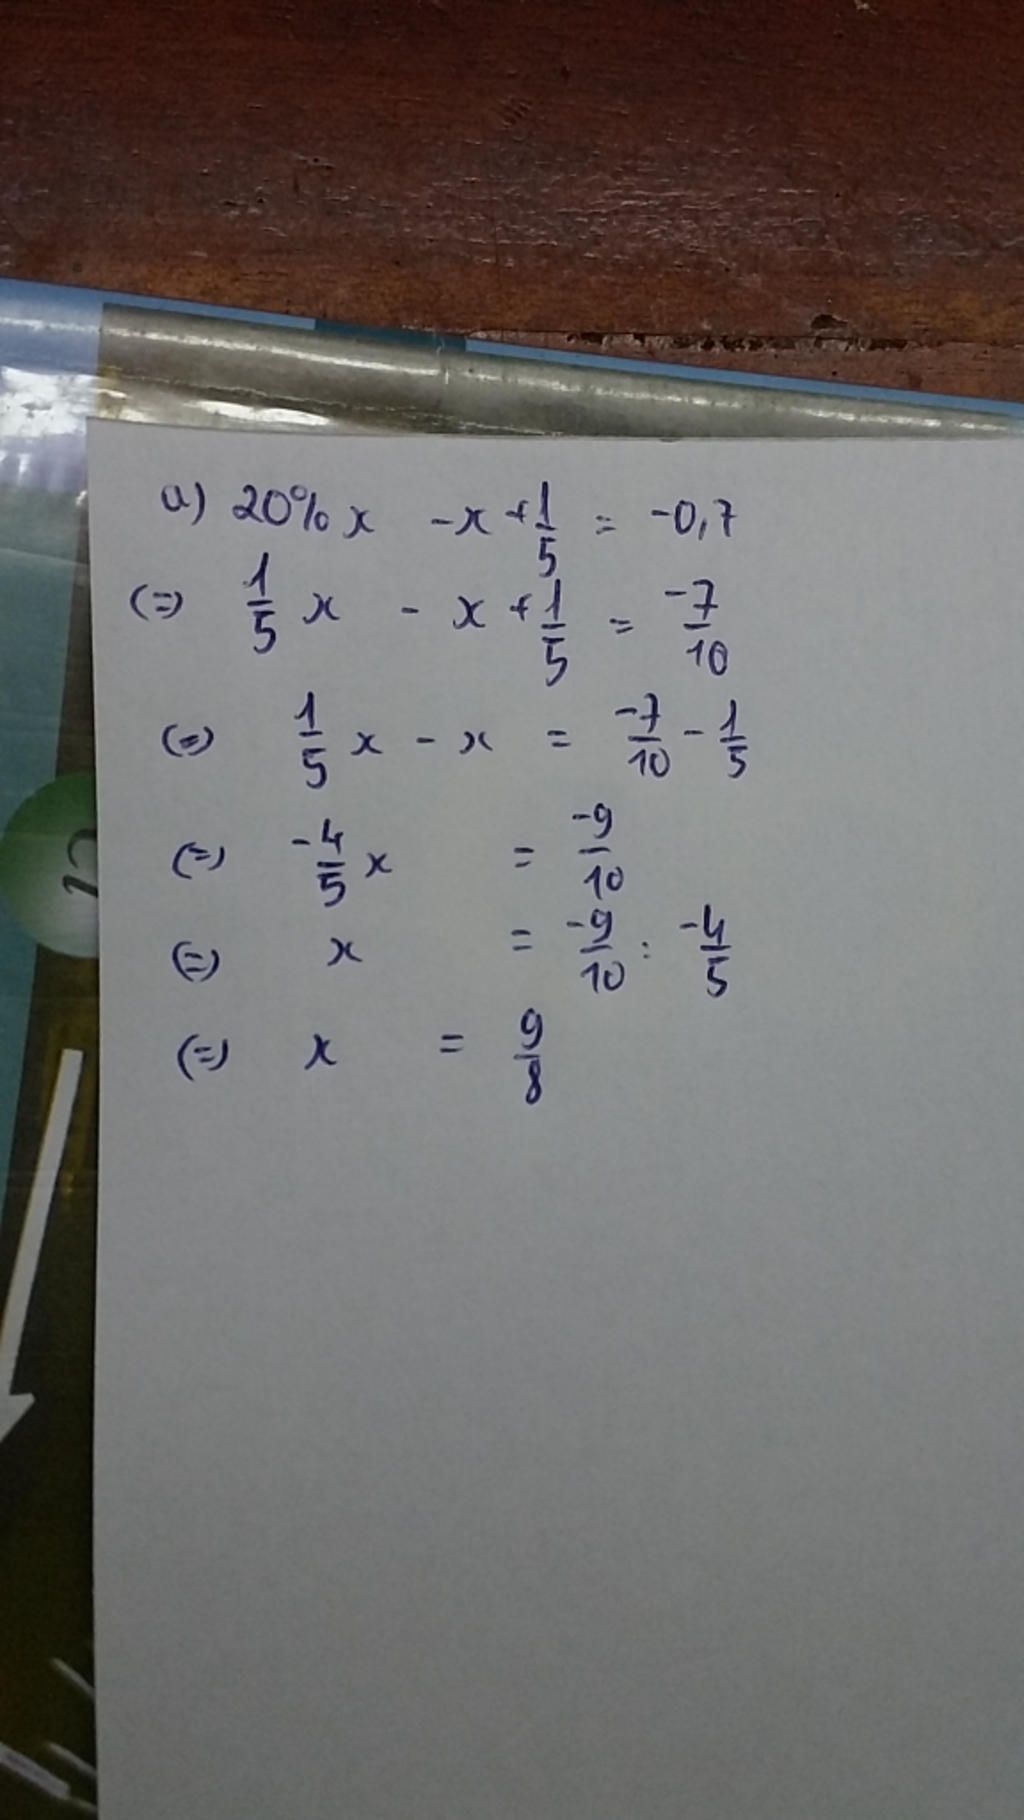 a) 20% x - x + 1/5 = -0,7
(=) 1/5 x - x + 1/5 = -7/10
(=) 1/5 x - x = -7/10 - 1/5
(=) -4/5 x = -9/10
(=) x = -9/10 : -4/5
(=) x = 9/8